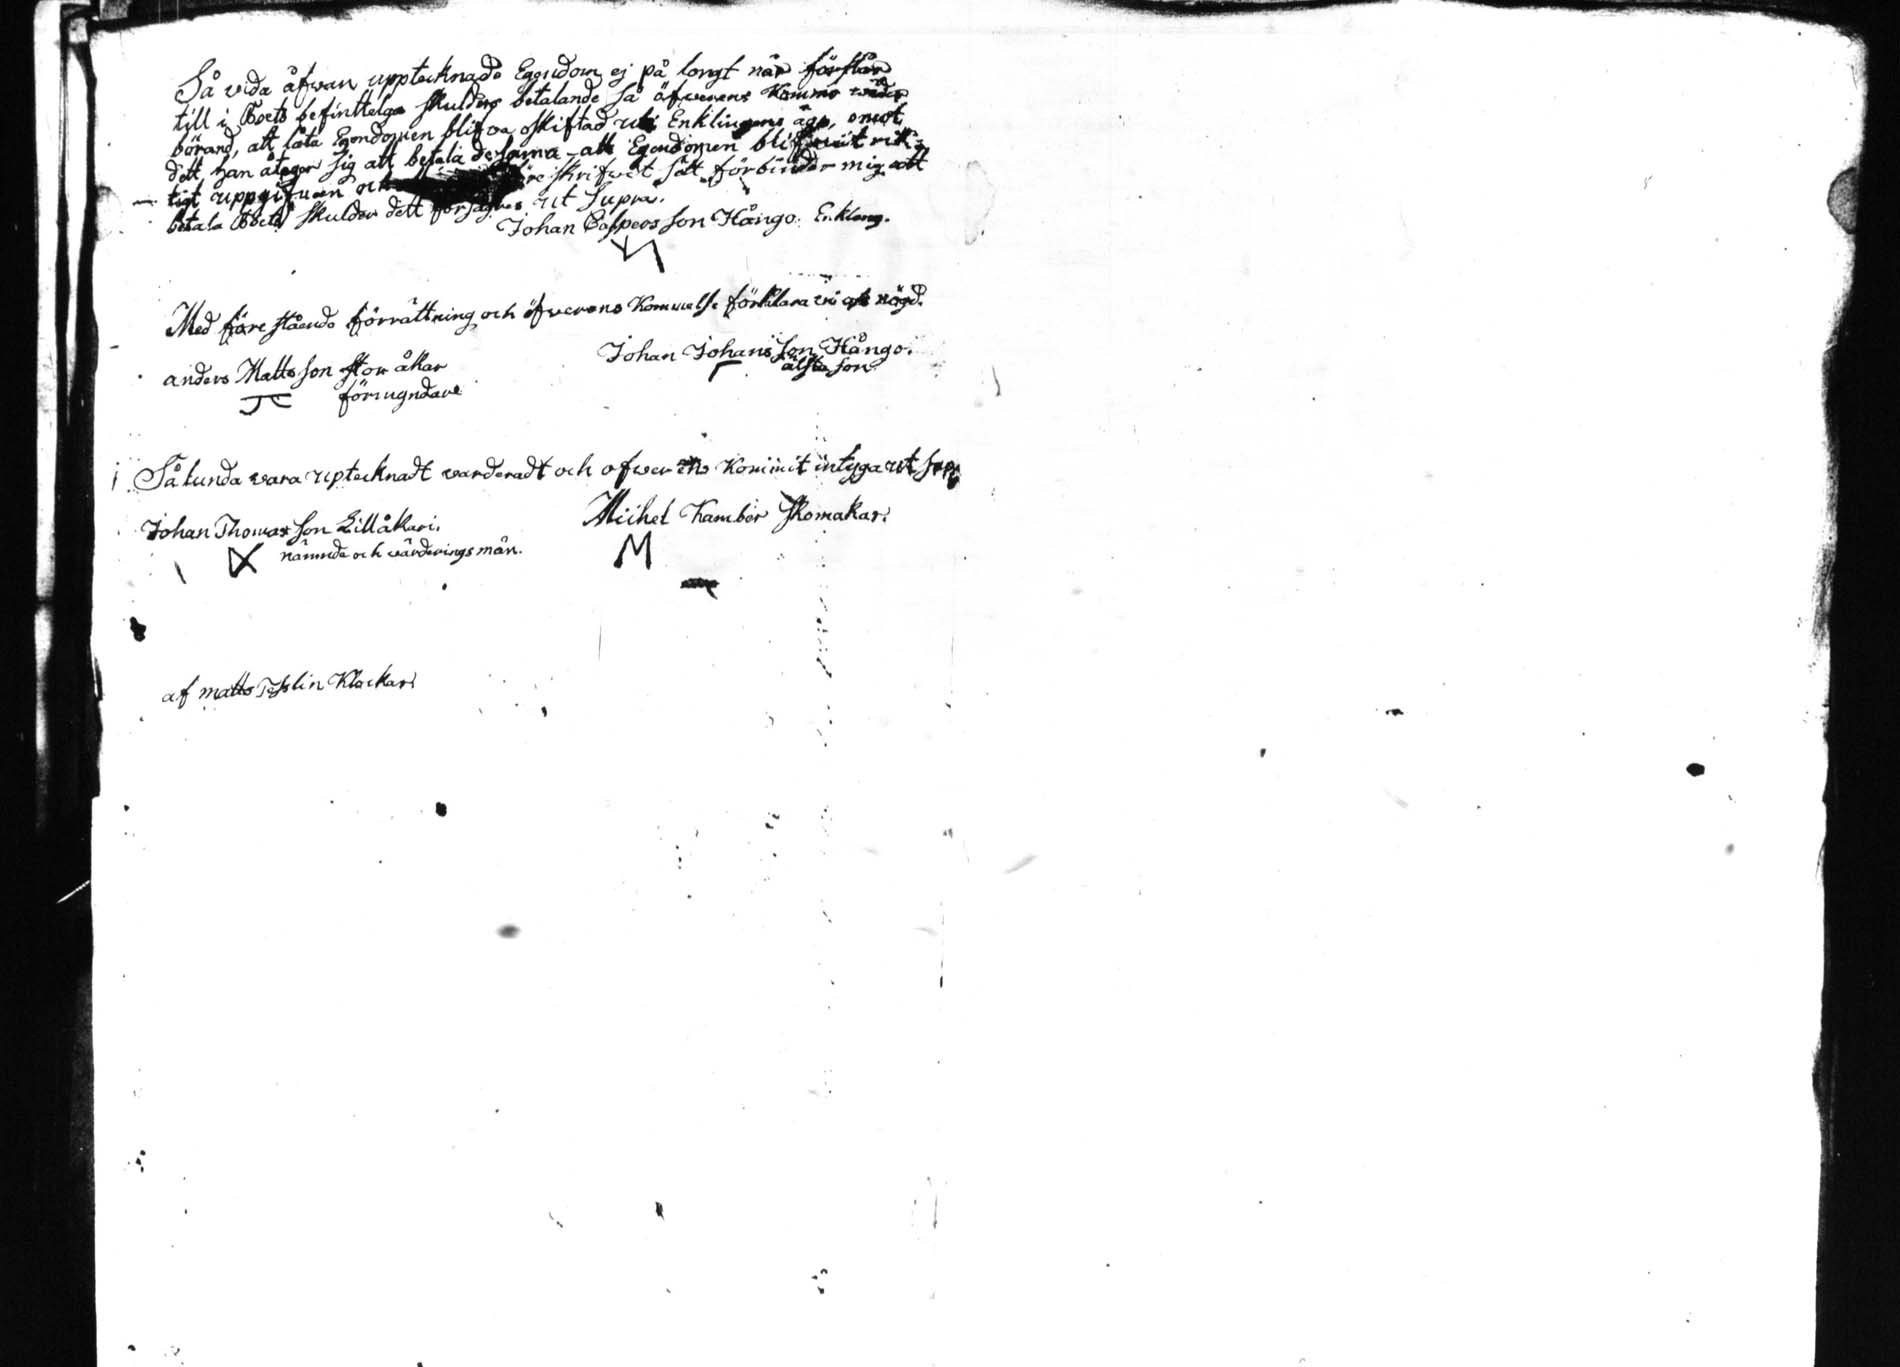 Så vida åfwan upptecknade Egendom ej på longt när förslår
till i Boets befintlelga skulders betalande så öfwerens Kommo weder
börand, att låta Egendomen blifva oskiftad uti Enklingens ägo, emot
dett han åtager sig att betala desama - att Egendomen blifwit rik¬
tigt uppgifwen och skrifwet sätt förbinder mig att
betala Boets skulder dett försägras ut Supra.
Johan Caspersson Hångo Enkleng.
Med före stående förrättning och öfwerens Kommelse förklara vi oss nögd.
anders Mattsson stor åkar
förmyndare
Johan Johansson Hångo.
älsta son
Så lunda vara uptecknadt varderadt och ofwerens Kommit intyga ut supr
Johan Thomasson Lillåkari.
nämnde och värderings män.
Michel Kamber skomakar.
M
af matts Tesslin Klockar